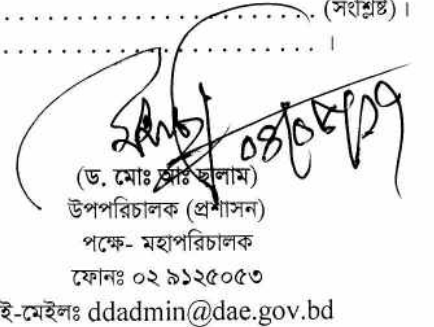 . . . . . . . . . . . . . . . . . . . . . . . . . . . . (সংশ্লিষ্ট) ।
. . . . . . . . . . . . . . . . . . . . . . . . . . . . ।
(ড. মোঃ আঃ ছালাম)
উপপরিচালক (প্রশাসন)
পক্ষে- মহাপরিচালক
ফোনঃ ০২ ৯১২৫০৫৩
ই-মেইলঃ ddadmin@dae.gov.bd